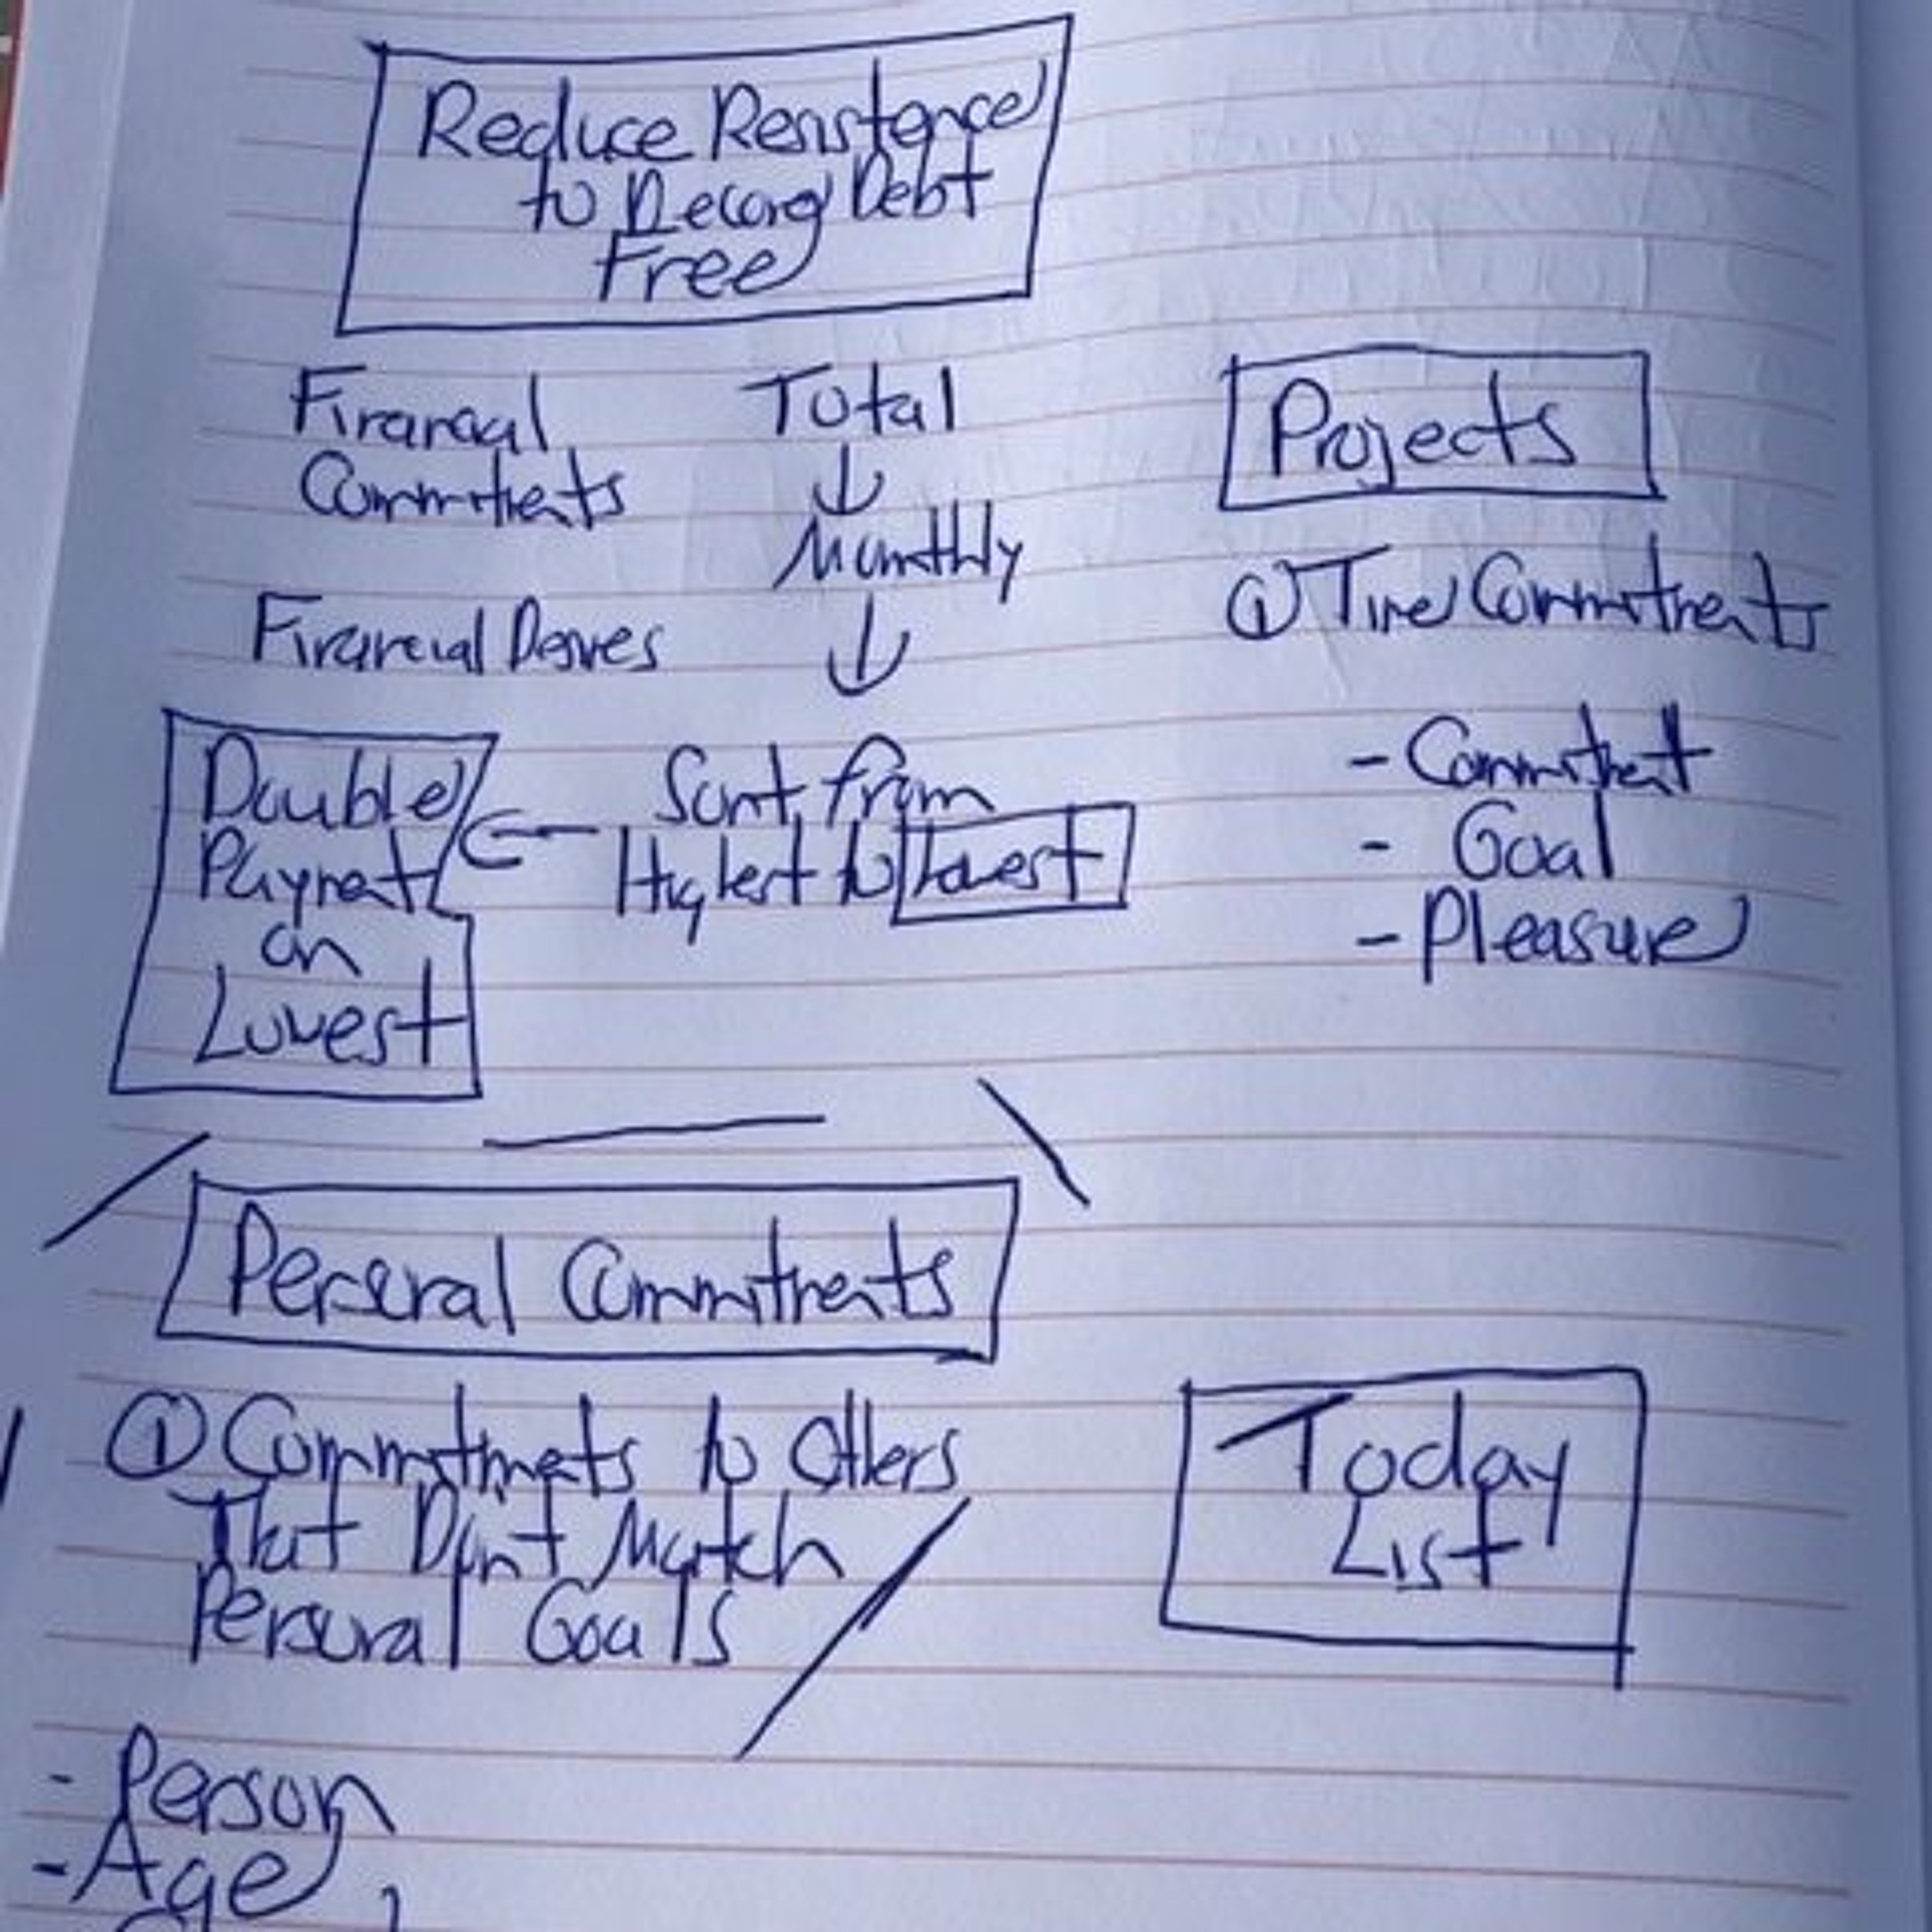 Reduce Resistence
to Becong Debt
Free
Financial
Commitments
Total
Monthly
Financial Desires
Sort from
Highest to Lowest
Double
Payment
on
Lowest
Projects
① Time Commitments
- Commitment
- Goal
- Pleasure
Personal Commitments
① Commitments to Others
That Don't Match
Personal Goals
Today
List
- Person
- Age